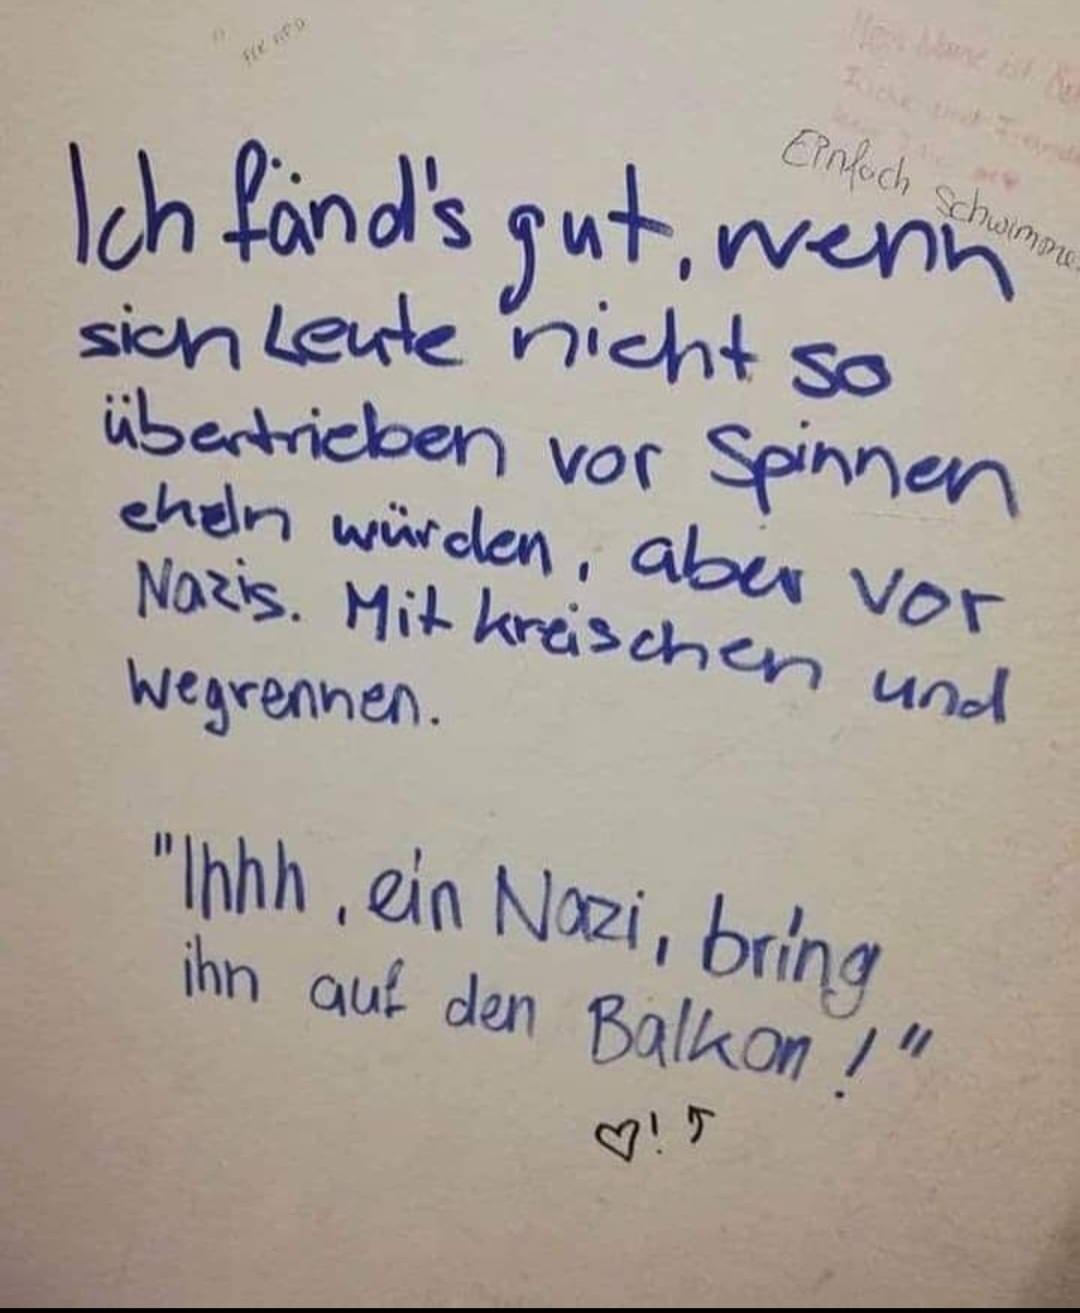 Einfach schwimme
Ich fänd's gut, wenn
sich Leute nicht so
übertrieben vor Spinnen
ekeln würden, aber vor
Nazis. Mit kreischen und
wegrennen.
"Ihhh, ein Nazi, bring
ihn auf den Balkon!"
♡! ↑